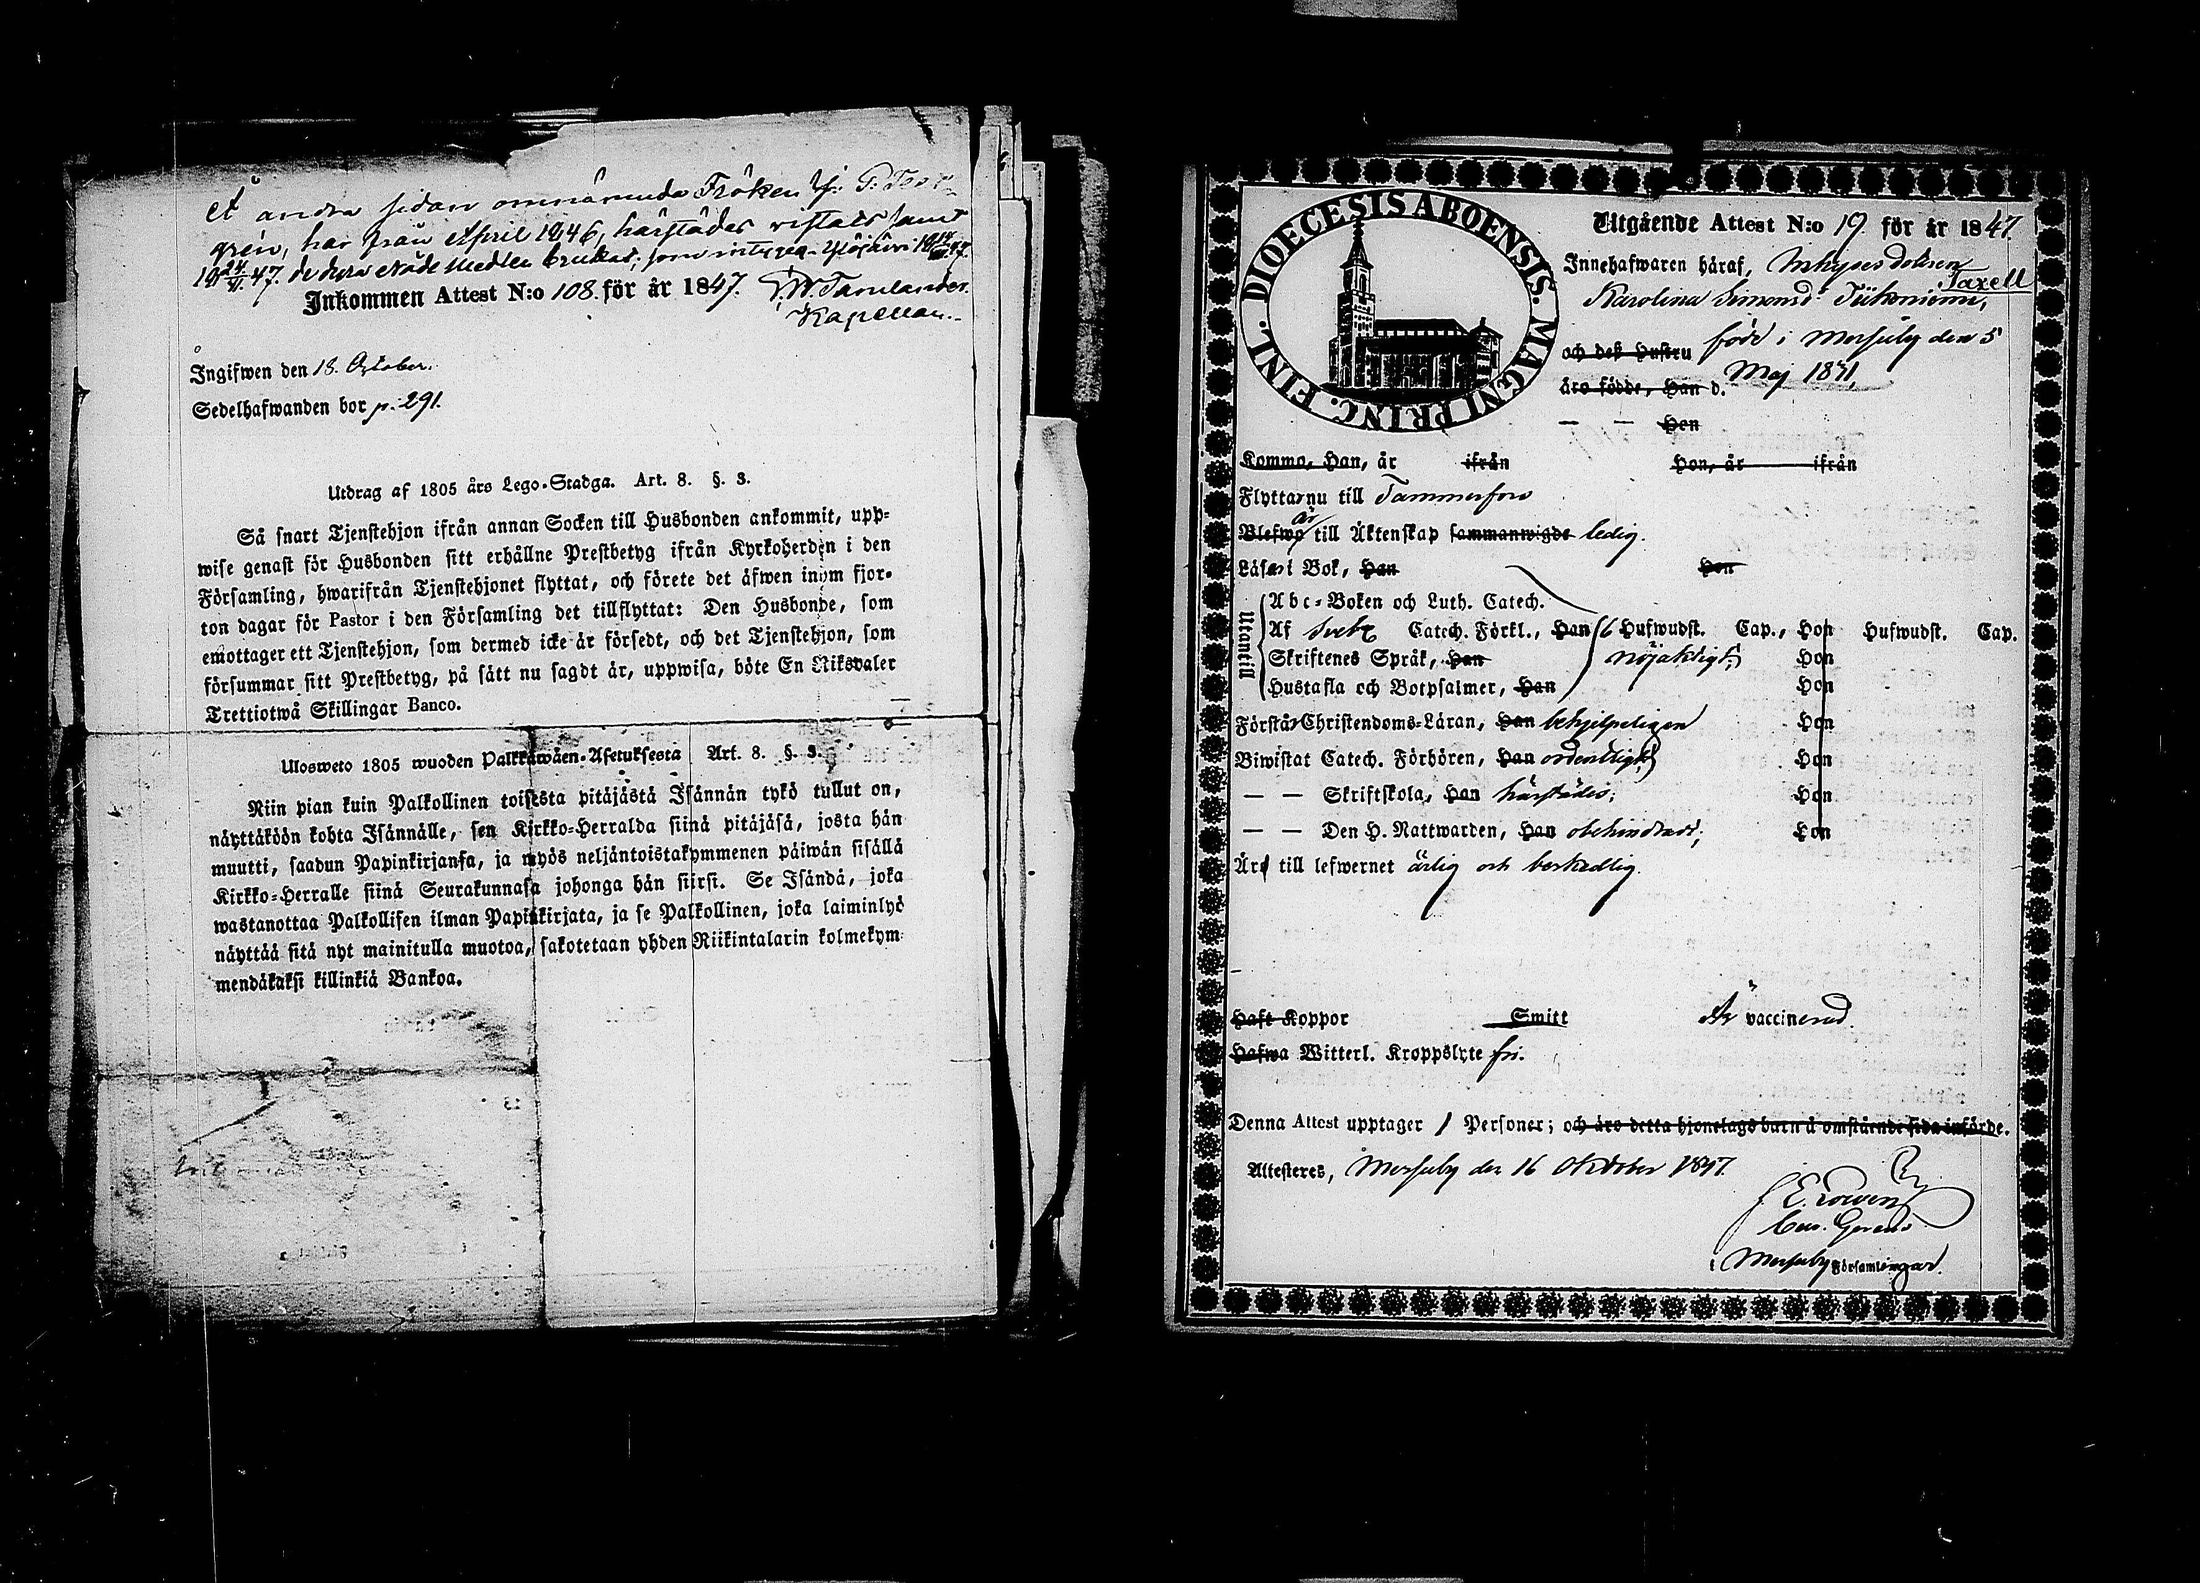 å andra sidan omnämnda Fröken
grén, har från April 1846, härstädes vistats samt
47. de dyra Nåde Medlen brukat, som intygas. Ylöjärvi
Inkommen Attest N:o 108. för år 1847.
Kapellan.
Ingifwen den 18. October.
Sedelhafwanden bor p. 291.
Utdrag af 1805 års Lego-Stadga. Art. 8. §. 3.
Så snart Tjenstehjon ifrån annan Socken till Husbonden ankommit, upp-
wise genast för Husbonden sitt erhållne Prestbetyg ifrån Kyrkoherden i den
Församling, hwarifrån Tjenstehjonet flyttat, och förete det äfwen inom fjor-
ton dagar för Pastor i den Församling det tillflyttat: Den Husbonde, som
emottager ett Tjenstehjon, som dermed icke är försedt, och det Tjenstehjon, som
försummar sitt Prestbetyg, på sätt nu sagdt är, uppwisa, böte En Riksdaler
Trettiotwå Skillingar Banco.
Ulosweto 1805 wuoden Palkkawäen-Asetuksesta Art. 8. §. 3.
Niin pian kuin Palkollinen toisesta pitäjästä Isännän tykö tullut on,
näyttäköön kohta Isännälle, sen Kirkko-Herralda siinä pitäjäsä, josta hän
muutti, saadun Papinkirjansa, ja myös neljäntoistakymmenen päiwän sisällä
Kirkko-Herralle siinä Seurakunnasa johonga hän siirsi. Se Isändä, joka
wastanottaa Palkollisen ilman Papinkirjata, ja se Palkollinen, joka laiminlyö
näyttää sitä nyt mainitulla muotoa, sakotetaan yhden Riikintalarin kolmekym-
mendäkaksi killinkiä Bankoa.
DIOECESIS ABOENSIS. MAGNI PRINC. FINL.
Utgående Attest N:o 19 för år 1847.
Innehafwaren häraf, Inhyses dotren
Taxell
Karolina Simonsd:
och deß Hustru född i Merseby den 5
äro födde, Han d. Maj 1831,
— — Hon
Komma, Han, år ifrån Hon, år ifrån
Flyttar nu till Tammerfors
är
Blefwo till Äktenskap sammanwigde ledig.
Läser i Bok, Han Hon
Utantill
Abc-Boken och Luth. Catech.
Af Sveb: Catech. Förkl., Han 6 Hufwudst. Cap., Hon Hufwudst. Cap.
Skriftenes Språk, Han nöjaktigt; Hon
Hustafla och Botpsalmer, Han Hon
Förstår Christendoms-Läran, Han behjelpeligen Hon
Biwistat Catech. Förhören, Han ordentligt; Hon
— — Skriftskola, Han härstädes; Hon
— — Den H. Nattwarden, Han obehindradt; Hon
Är till lefwernet ärlig och beskedlig.
Haft Koppor Smitt Är vaccinerad.
Hafwa Witterl. Kroppslyte fri.
Denna Attest upptager 1 Personer; och äro detta hjonelags barn å omstående sida införde.
Attesteres, Merseby den 16 Oktober 1847.
i Merseby Församlingar.